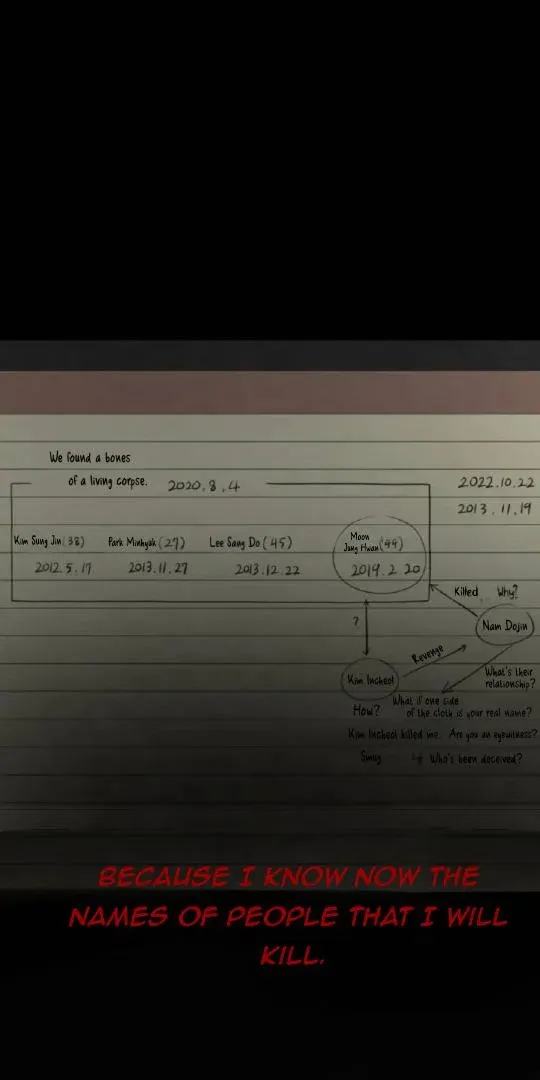 We found a bones
of a living corpse. 2020.8.4
2022.10.22
2013.11.19
Kim Sung Jin (38) Park Minhyuk (27) Lee Sang Do (45) Moon
Jung Hwan (44)
2012.5.17 2013.11.27 2013.12.22 2019.2.20
Killed Why?
?
Nam Dojin
Revenge
Kim Incheol
What's their
relationship?
How? What if one side
of the cloth is your real name?
Kim Incheol killed me. Are you an eyewitness?
Who's been deceived?
BECAUSE I KNOW NOW THE
NAMES OF PEOPLE THAT I WILL
KILL.